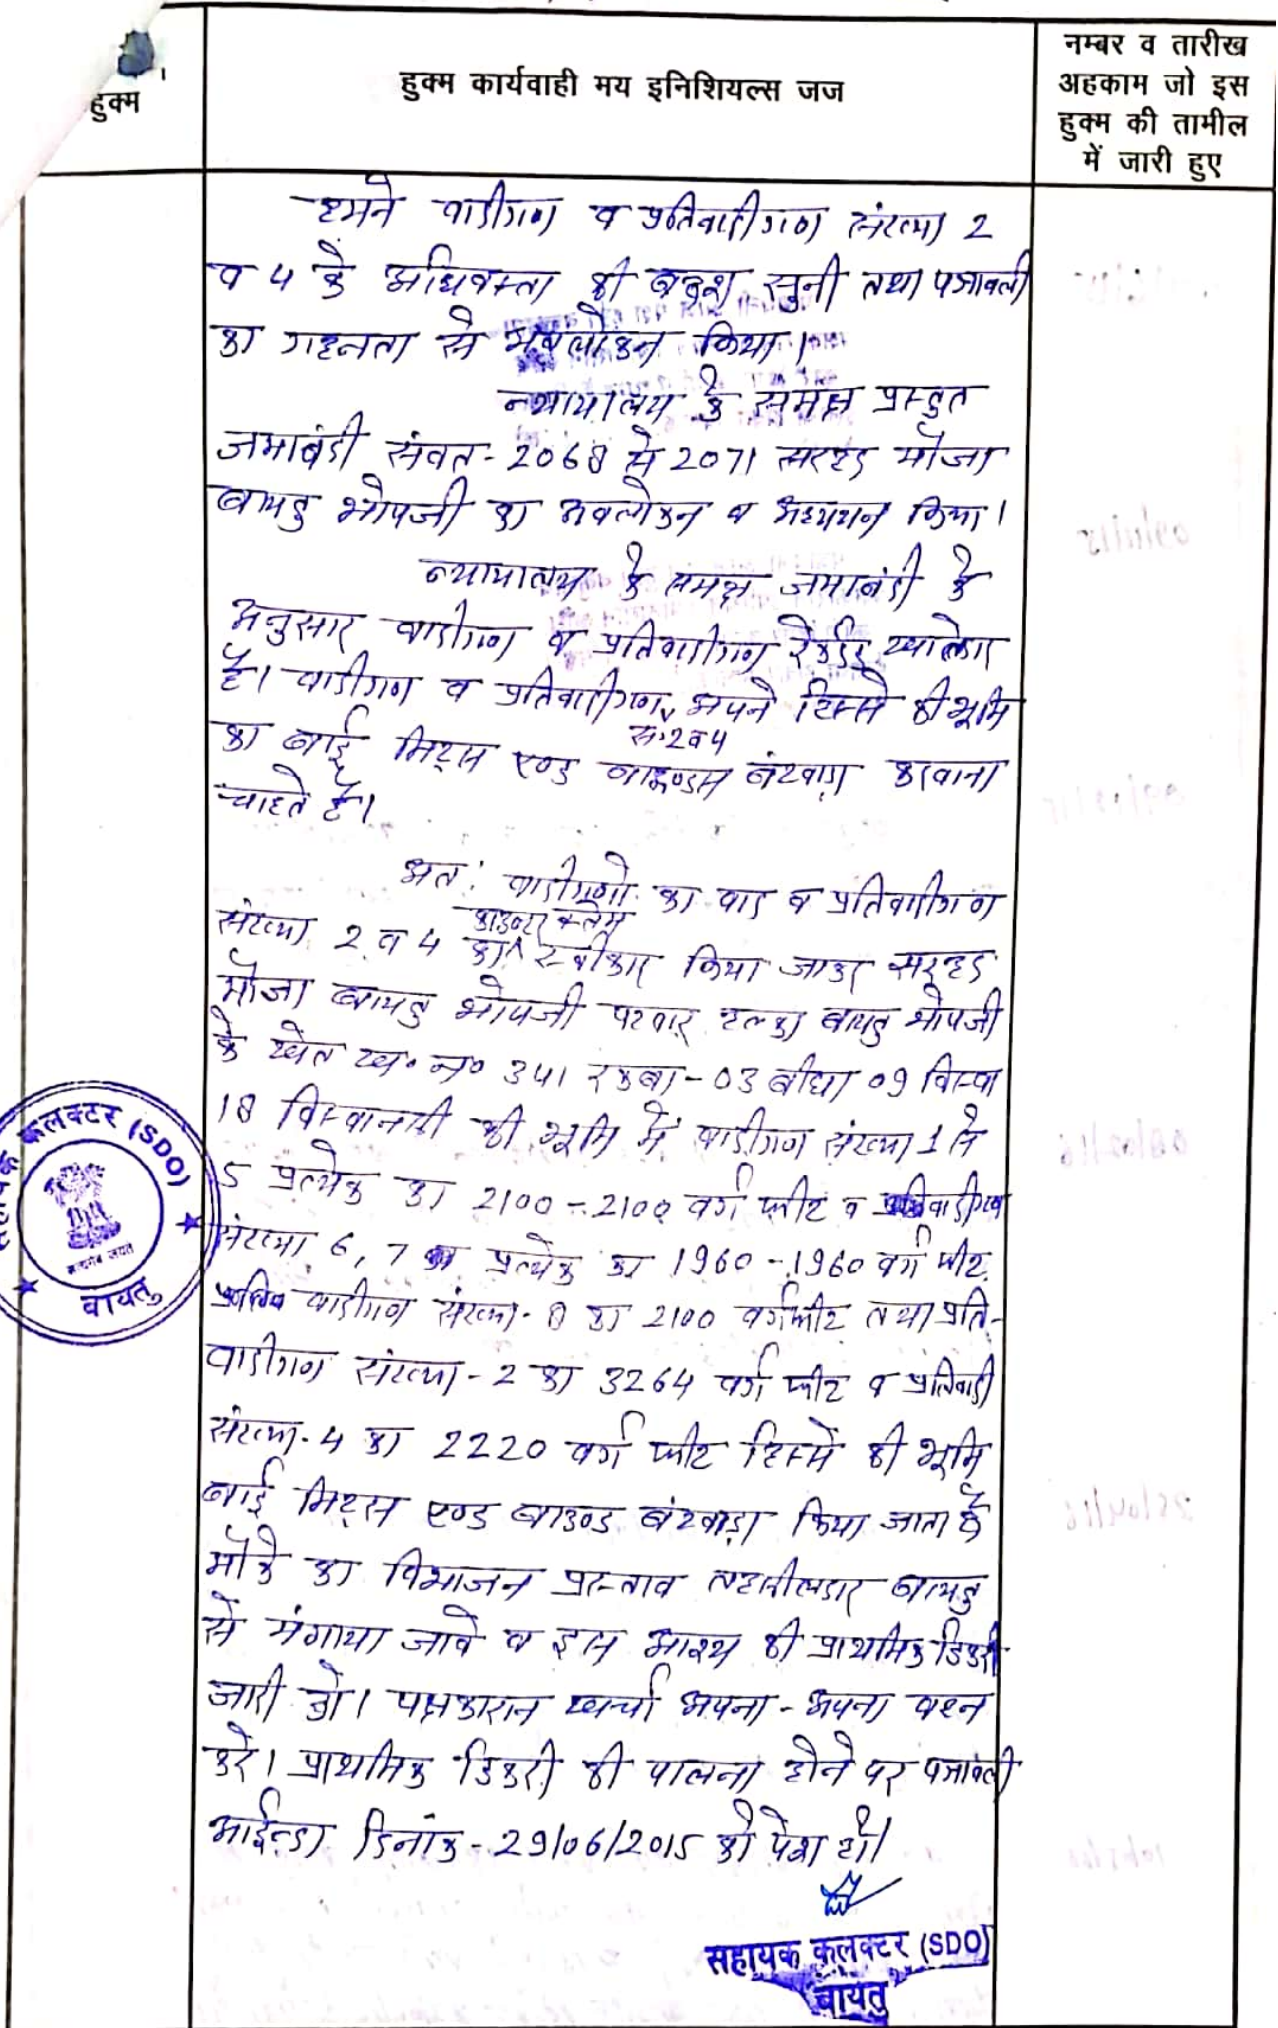 हुक्म
हुक्म कार्यवाही मय इनिशियल्स जज
नम्बर व तारीख
अहकाम जो इस
हुक्म की तामील
में जारी हुए
हमने वादीगण व प्रतिवादीगण संख्या 2
व 4 के अधिवक्ता की बहस सुनी तथा पत्रावली
का गहनता से अवलोकन किया।
न्यायालय के समक्ष प्रस्तुत
जमाबंदी संवत - 2068 से 2071 सरहद मौजा
बायतु भोपजी का अवलोकन व अध्ययन किया।
न्यायालय के समक्ष जमाबंदी के
अनुसार वादीगण व प्रतिवादीगण रेकर्डेड खातेदार
है। वादीगण व प्रतिवादीगण अपने हिस्से की भूमि
सं. 2 व 4
का बाई मिट्स एण्ड बाऊण्डस बंटवाड़ा करवाना
चाहते हैं।
अतः वादीगणो का वाद व प्रतिवादीगण
काउन्टर क्लेम
संख्या 2 व 4 का स्वीकार किया जाकर सरहद
मौजा बायतु भोपजी पटवार हल्का बायतु भोपजी
के खेत ख० न० 341 रकबा - 03 बीघा 09 विस्वा
18 विस्वानसी की भूमि में वादीगण संख्या 1 से
5 प्रत्येक का 2100 - 2100 वर्ग फीट व वादीगण
संख्या 6, 7 प्रत्येक का 1960 - 1960 वर्ग फीट
वादीगण संख्या - 8 का 2100 वर्गफीट तथा प्रति-
वादीगण संख्या - 2 का 3264 वर्ग फीट व प्रतिवादी
संख्या - 4 का 2220 वर्ग फीट हिस्से की भूमि
बाई मिट्स एण्ड बाउण्ड बंटवाड़ा किया जाता है
मौके का विभाजन प्रस्ताव तहसीलदार बायतु
से मंगाया जावे व इस आशय की प्राथमिक डिकरी
जारी हो। पक्षकारान खर्चा अपना - अपना वहन
करे। प्राथमिक डिकरी की पालना होने पर पत्रावली
आईन्दा दिनांक - 29/06/2015 को पेश हो।
सहायक कलक्टर (SDO)
बायतु
सहायक कलक्टर (SDO)
सत्यमेव जयते
बायतु